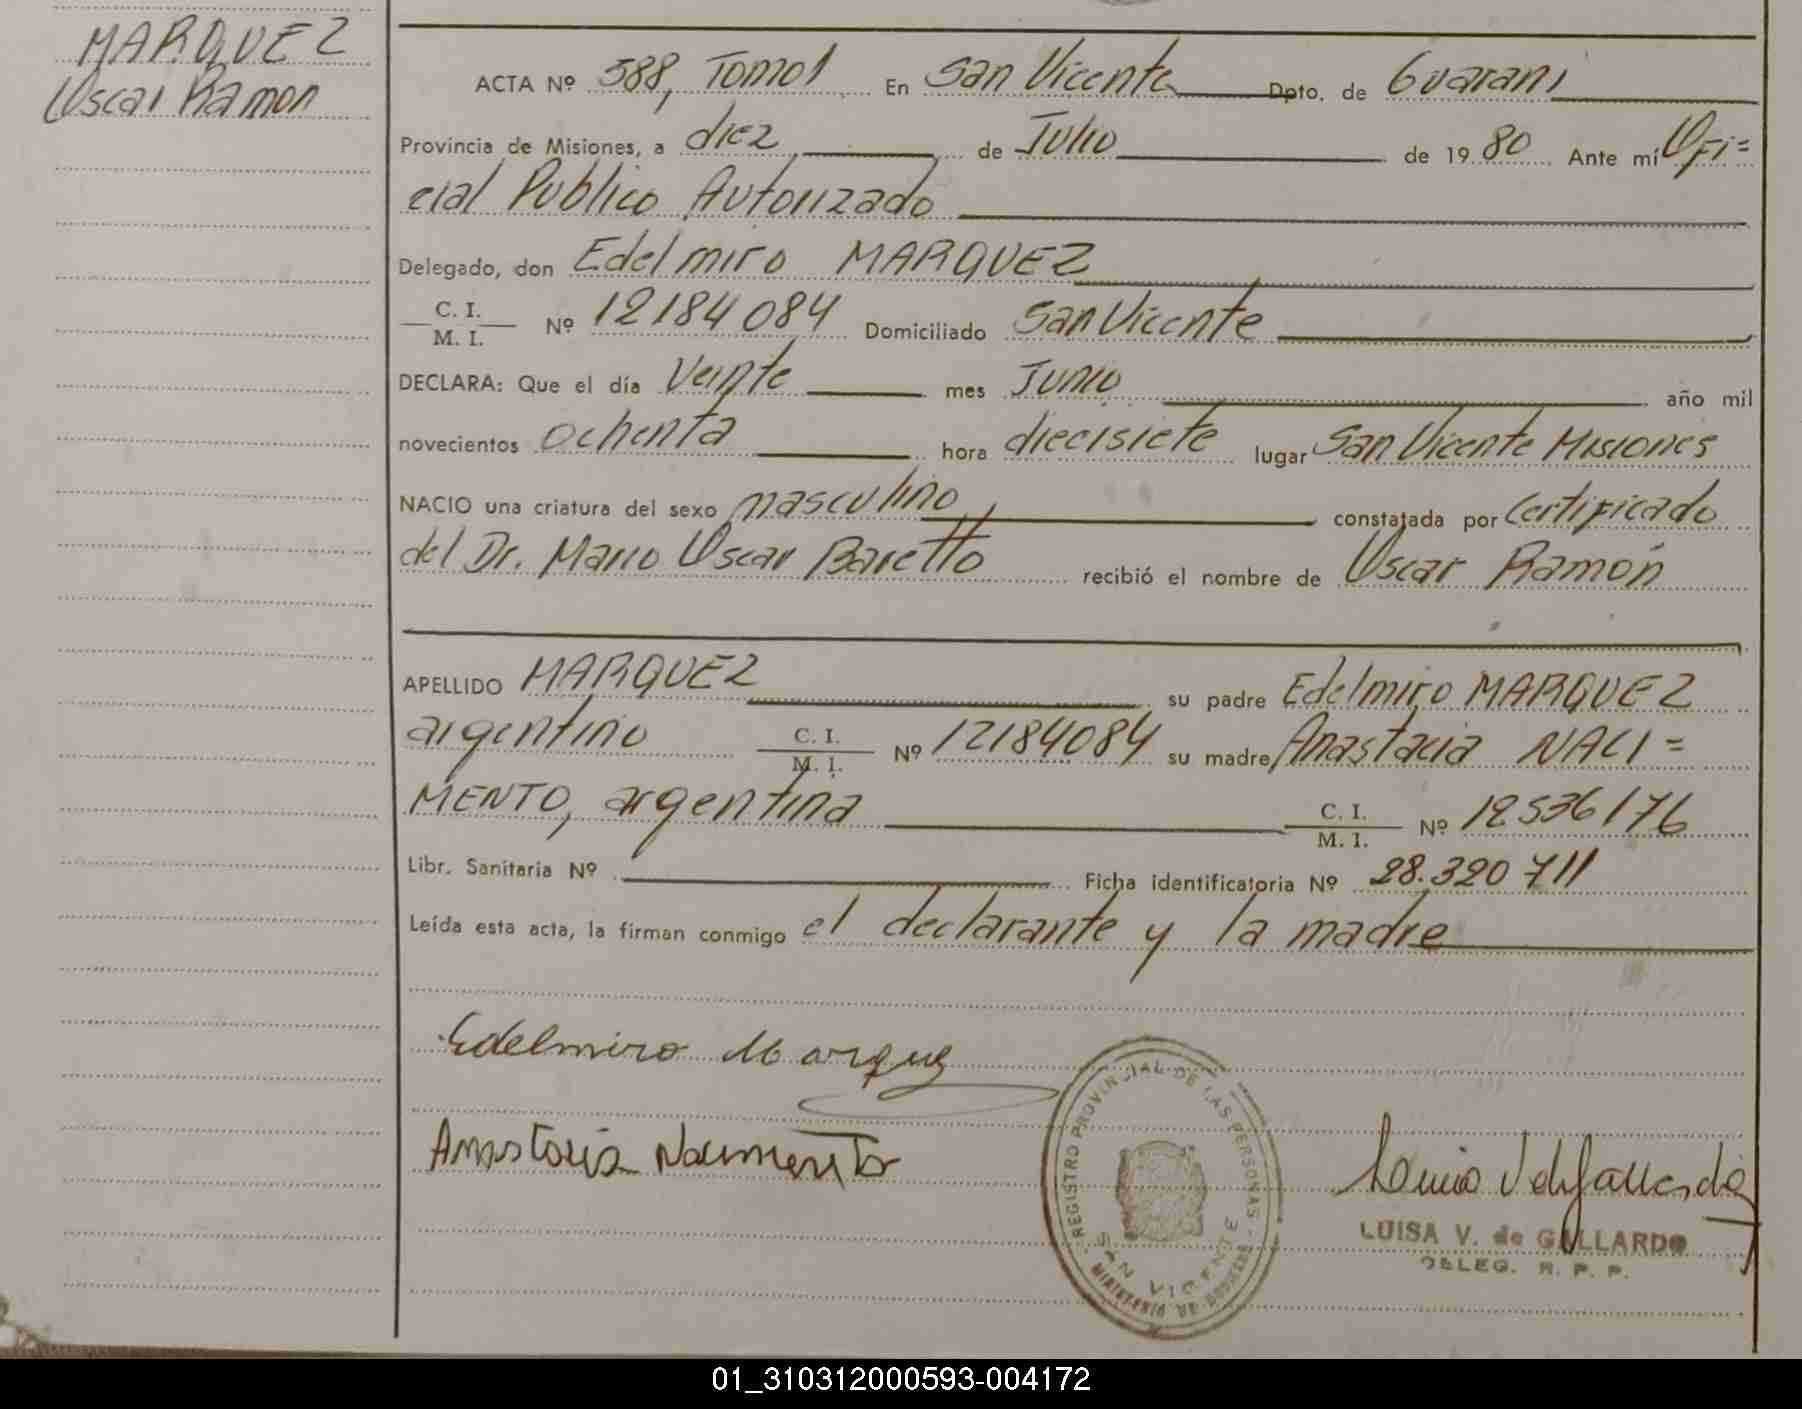 MARQUEZ
Oscar Ramon
ACTA Nº 588, Tomo 1 En San Vicente Dpto. de Guarani
Provincia de Misiones, a diez de Julio de 1980 Ante mí Ofi=
cial Publico Autorizado
Delegado, don Edelmiro MARQUEZ
C. I.
M. I. Nº 12184084 Domiciliado San Vicente
DECLARA: Que el día Veinte mes Junio año mil
novecientos ochenta hora diecisiete lugar San Vicente Misiones
NACIO una criatura del sexo masculino constatada por Certificado
del Dr. Mario Oscar Baretto recibió el nombre de Oscar Ramón
APELLIDO MARQUEZ su padre Edelmiro MARQUEZ
argentino C. I. M. I. Nº 12184084 su madre Anastacia NACI=
MENTO, argentina C. I. M. I. Nº 12536176
Libr. Sanitaria Nº Ficha identificatoria Nº 28.320 711
Leída esta acta, la firman conmigo el declarante y la madre
Edelmiro Marquez
Anastacia Nacimento
REGISTRO PROVINCIAL DE LAS PERSONAS
SAN VICENTE
MINISTERIO DE GOBIERNO
LUISA V. de GALLARDO
DELEG. R. P. P.
01_310312000593-004172